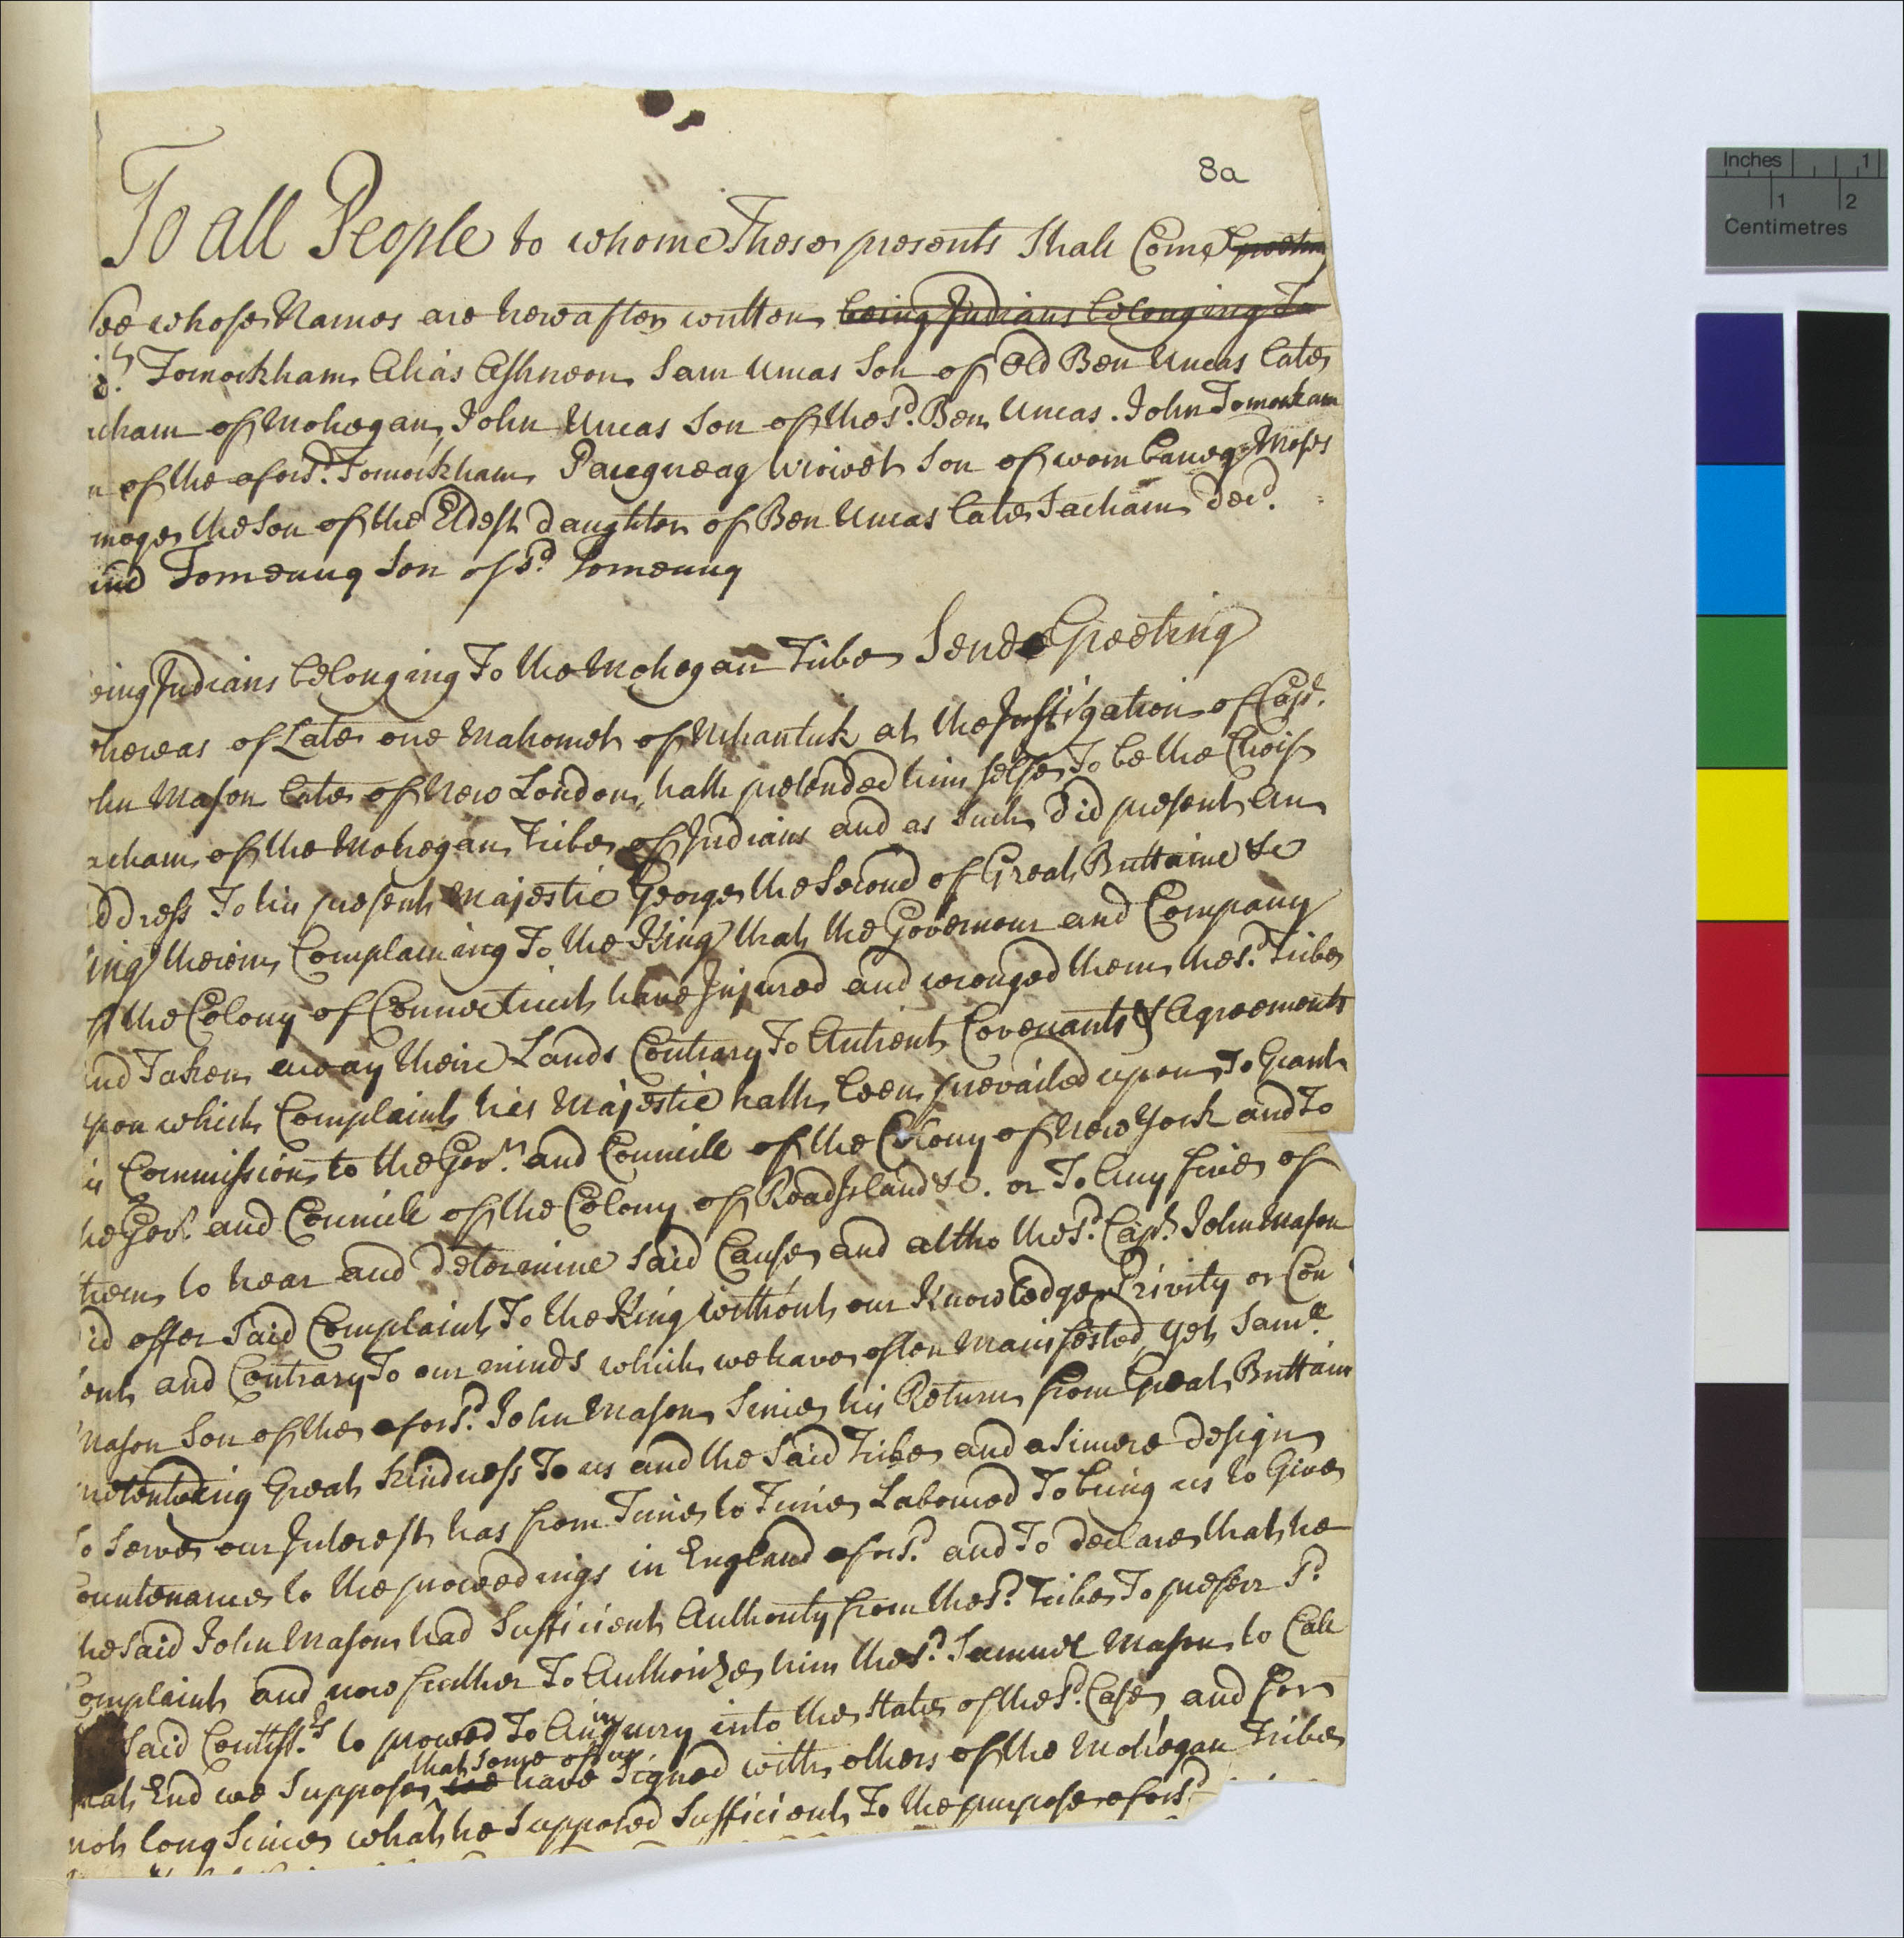 8a
To all People to whome These presents Shall Come Greeting
whose Names are hereafter written being Indians belonging To
Tomockham Alias Ashneon Sam Uncas Son of Old Ben Uncas late
cham of Mohegan, John Uncas Son of the sd. Ben Uncas. John Tomockam
n of the aforsd. Tomockham Paugneag Son of Moses
the Son of the Eldest daughter of Ben Uncas late Sacham decd.
and Tomeaug Son of sd. Tomeaug
eing Indians belonging To the Mohegan Tribe Send Greeting
hereas of Late one Mahomet of Nehantuk at the Instigation of Capt.
ohn Mason late of New London, hath pretended him selfe To be the Cheif
acham of the Mohegan Tribe of Indians and as Such did present an
ddress To his present Majestie George the Second of Great Brittaine &c
ing therein Complaining To the King that the Governour and Company
of the Colony of Connecticut have Injured and wronged them the sd. Tribe
and Taken away theire Lands Contrary To Antient Covenants & Agreements
upon which Complaint his Majestie hath been prevailed upon To Grant
is Commission to the Govr. and Councill of the Colony of New York and To
he Govr. and Councill of the Colony of Road Island &c. or To Any five of
them to hear and determine said Cause and altho the sd. Capt. John Mason
did offer Said Complaint To the King without our Knowledge Privity or Con
sent and Contrary To our minds which we have often Mainfested, yet Samll
Mason Son of the aforsd. John Mason Since his Return from Great Brittain
pretending Great kindness To us and the Said Tribe and a Sincere design
To Serve our Interest has from Time to Time Laboured To bring us to Give
Countenance to the proceedings in England aforsd. and To declare that he
he Said John Mason had Sufficient Authority from the sd. Tribe To preferr sd.
Complaint and now further To Authorize him the sd. Samuel Mason to Call
Said to proceed To an inquiry into the State of the sd. Case and for
that some of us
that End we Suppose we have Signed with others of the Mohegan Tribe
not long Since what he Supposed Sufficient To the purpose aforsd
Inches 1
1 2
Centimetres